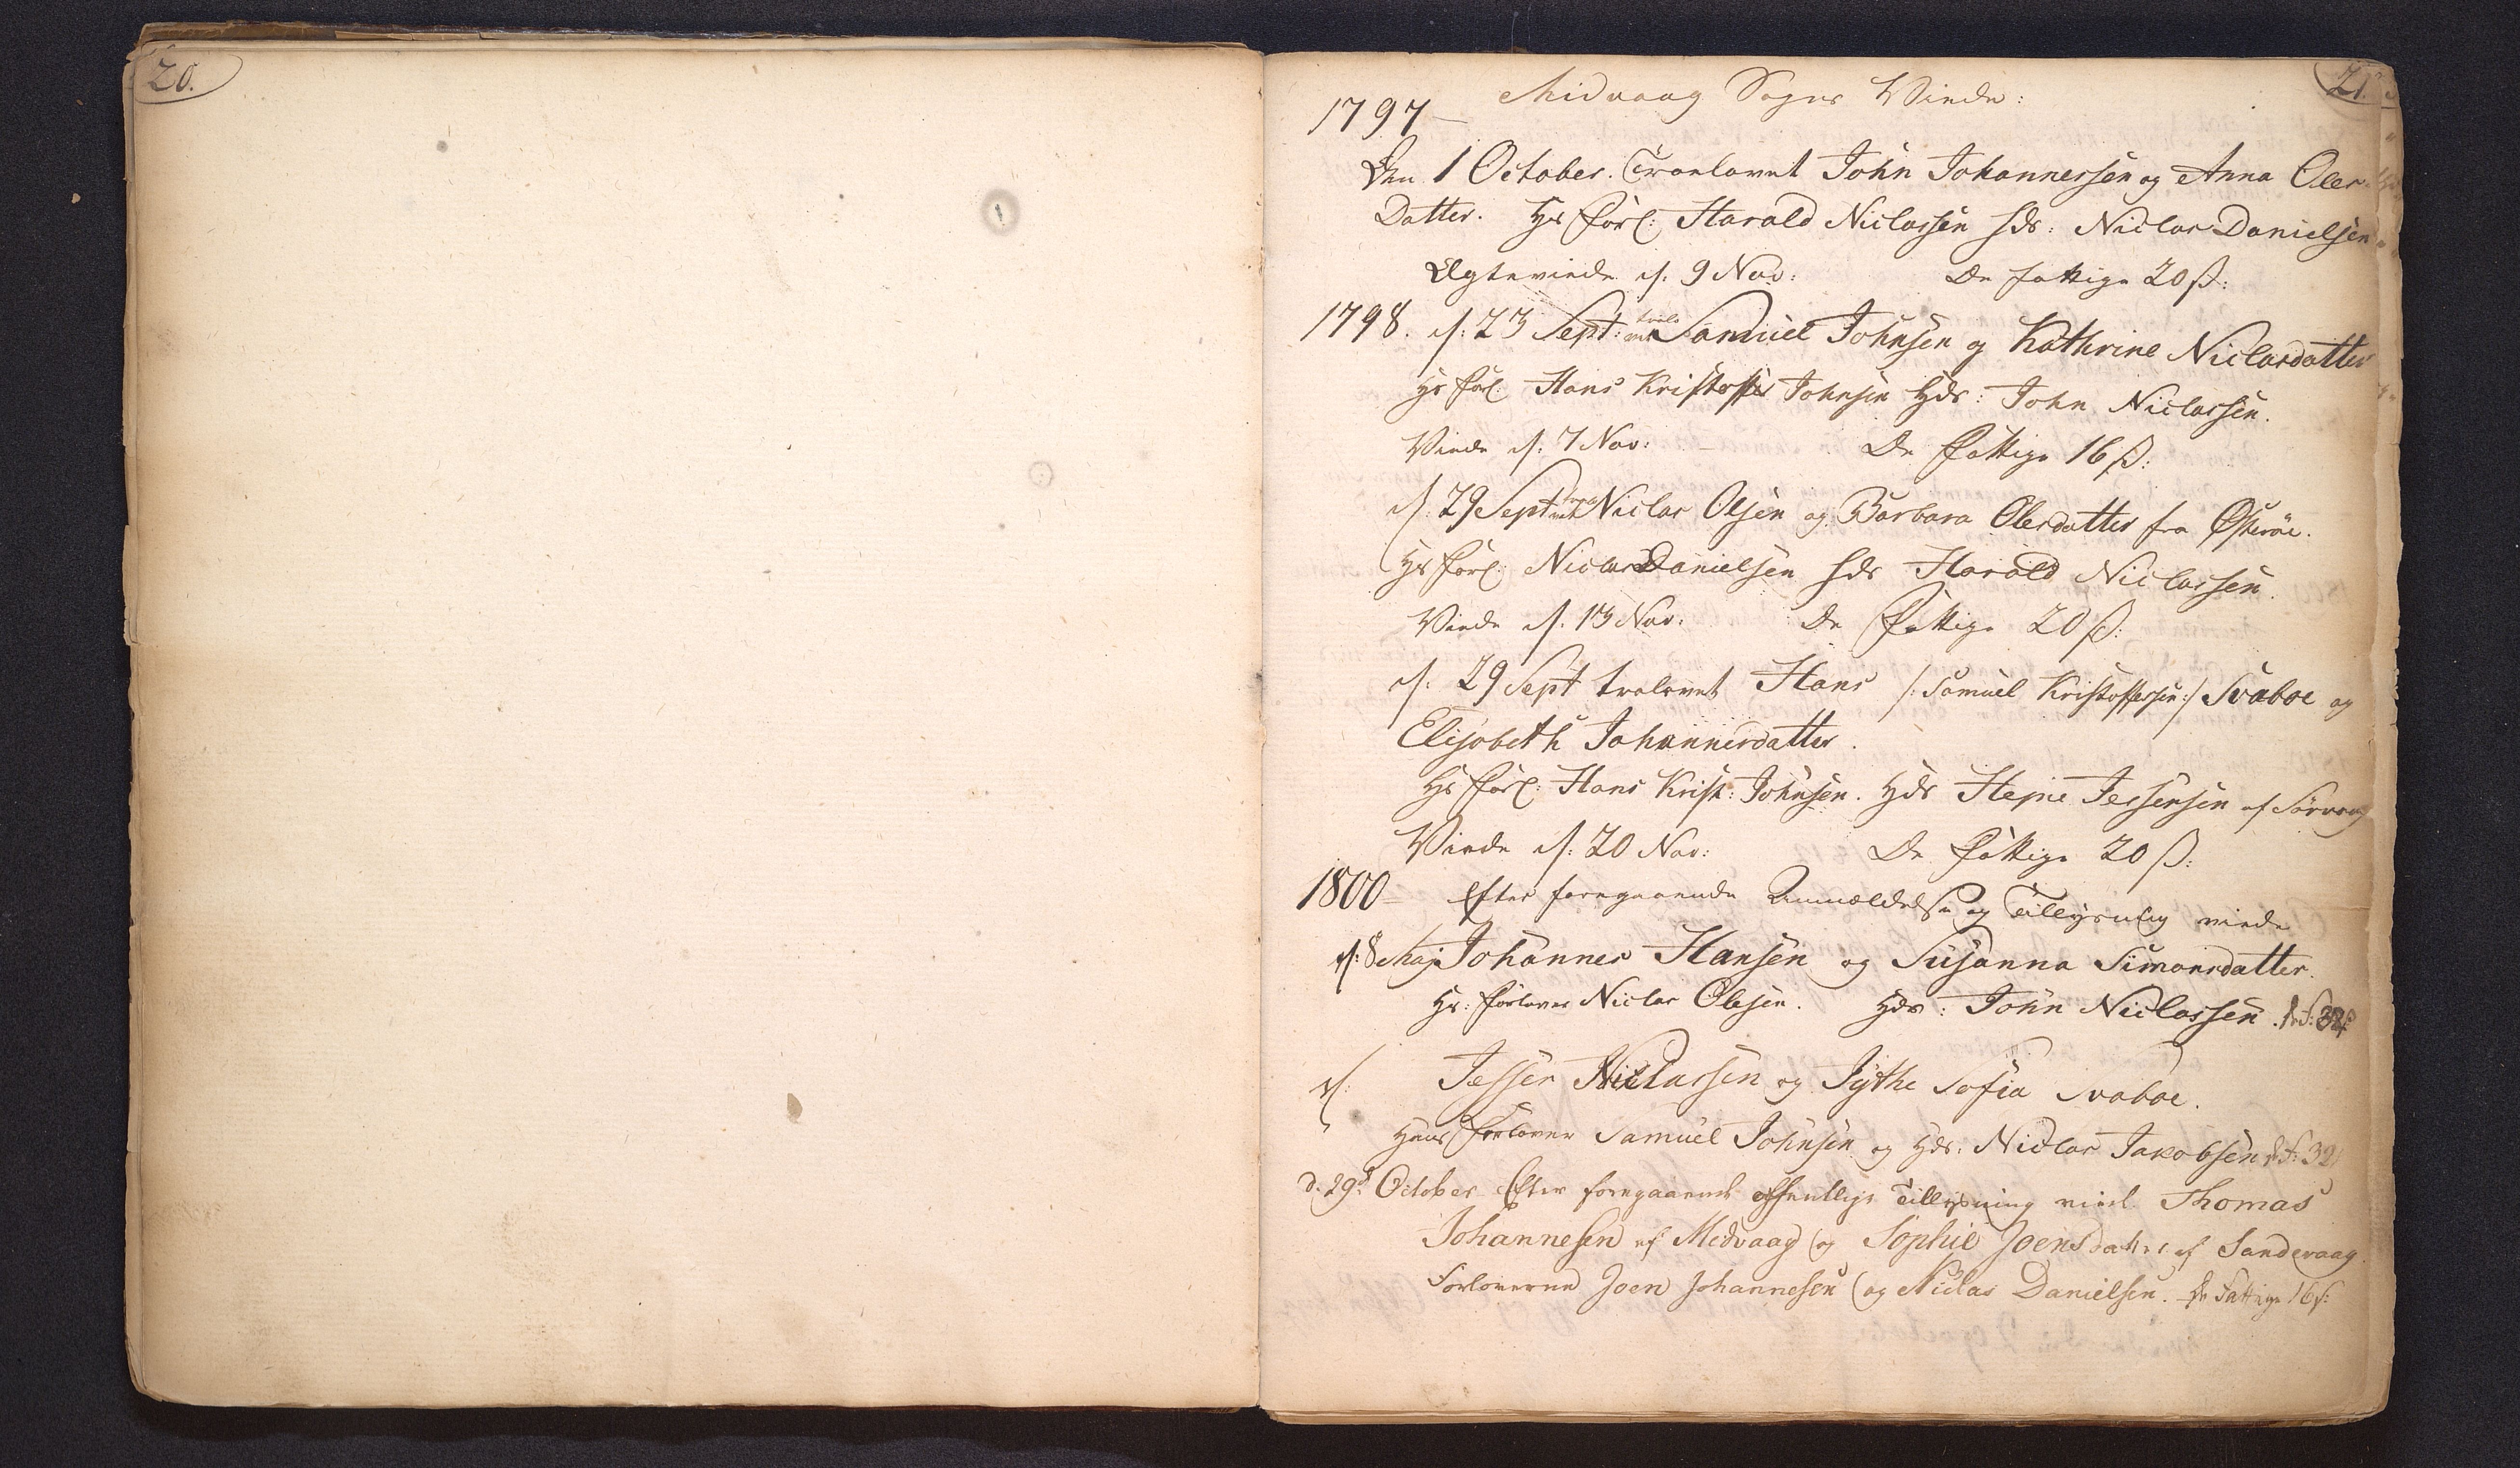 20.
21.
Midvaag Sogns Viede:
1797
Den 1 October. Troelovet John Johannessen og Anna Oles
Datter. Hs Forl: Harald Niclassen hds: Niclas Danielsen
Ægteviede d. 9 Nov: De fattige 20 ß:
1798. d: 23 Sept: trolovet Samuel Johnsen og Kathrine Niclasdatter
Hs Forl: Hans Kristoffer Johnsen Hds: John Niclassen.
Viede d. 7 Nov: De Fattige 16 ß:
d. 29 Sept trolovet Niclas Olsen og Barbara Olesdatter fra Østerøe.
Hs Forl: Niclas Danielsen hds Harald Niclassen.
Viede d. 13 Nov: De Fattige 20 ß:
d: 29 Sept trolovet Hans /: Samuel Kristoffersen :/ Svaboe og
Elisabeth Johannesdatter.
Hs Forl: Hans Krist: Johnsen. Hds Hejne Jessensen af Sörvaag
Viede d: 20 Nov: De Fattige 20 ß:
1800 Efter foregaaende Anmældelse og Tillysning viede
d: 8 Maj Johannes Hansen og Susanna Simonsdatter.
Hs: Forlover Niclas Olesen. Hds: John Niclassen. d. F: 32 ß
d: Jesser Niclassen og Sythe Sofia Svaboe.
Hans Forlover Samuel Johnsen og Hds: Niclas Jakobsen d. F: 32
d. 29d October Efter foregaaende offentlige Tillysning viede Thomas
Johannesen af Midvaag og Sophie Joensdatter af Sandevaag
Forloverne Joen Johannesen og Niclas Danielsen. De Fattige 16 ß: